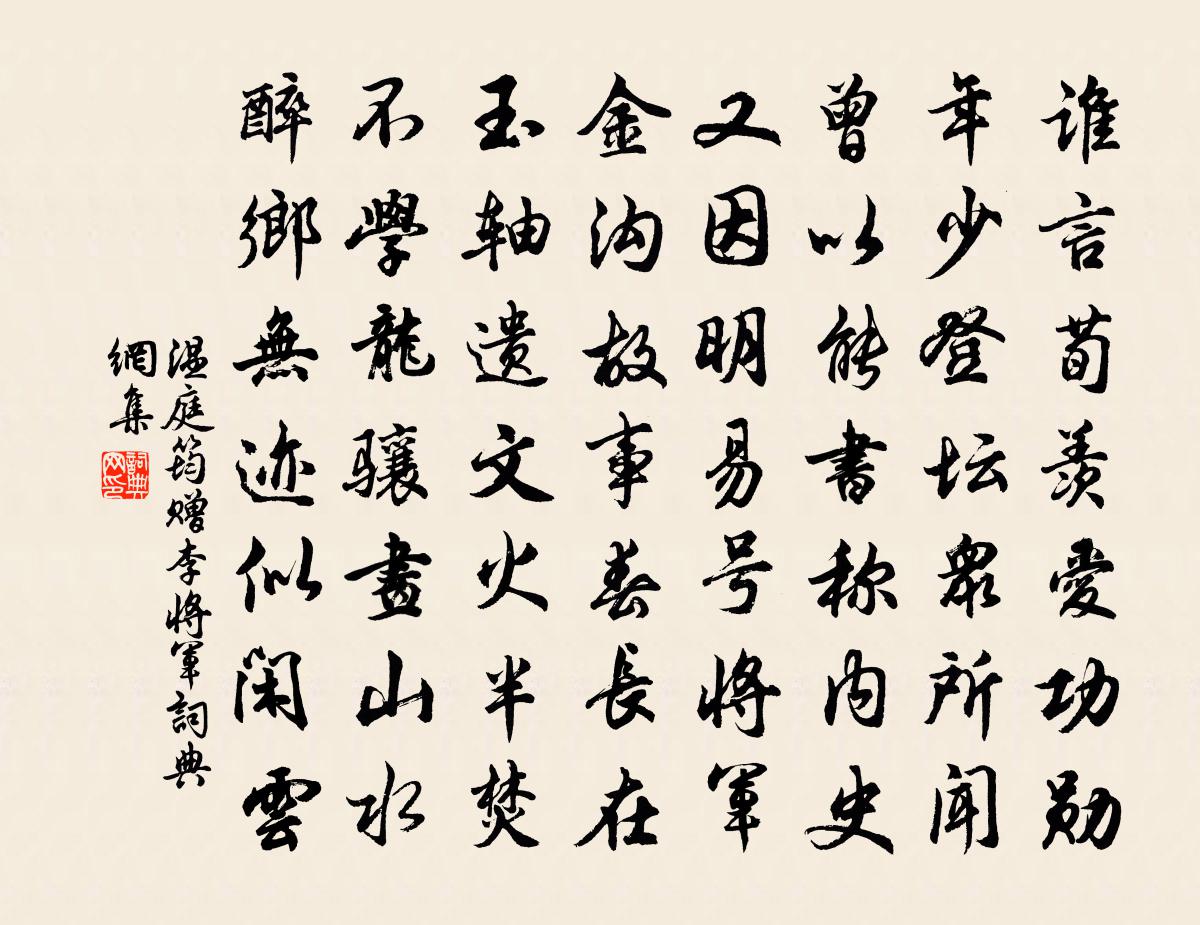 谁言荀羡爱功勋
年少登坛眾所闻
曾以能書称内史
又因明易号将軍
金沟故事春長在
玉轴遗文火半焚
不學龍骧畫山水
醉鄉無迹似闲雲
温庭筠赠李将軍詞典
網集
詞典网印